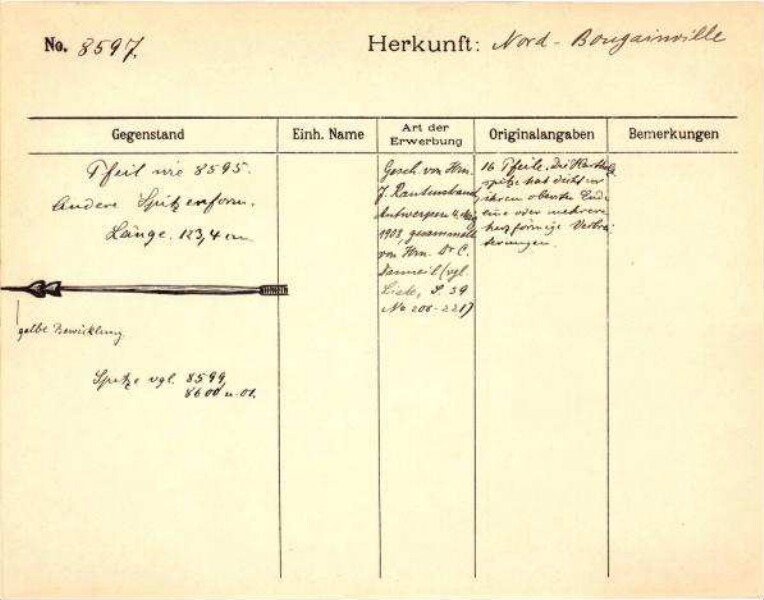 No. 8597.
Herkunft: Nord-Bougainville
Gegenstand
Einh. Name
Art der Erwerbung
Originalangaben
Bemerkungen
Pfeil wie 8595.
Andere Spitzenform.
Länge. 123,4 cm
gelbe Bewicklung
Spitze vgl. 8599,
8600 u. 01.
Gesch. von Hrn.
J. Rautenstrauch
Antwerpen
1903, gesammelt
von Hrn. Dr C.
Danneil (vgl.
Liste, S. 39
No 206-221)
16 Pfeile. Die Hartholz
spitze hat dicht vor
ihrem obersten Ende
eine oder mehrere
herzförmige Verbrei
terungen.